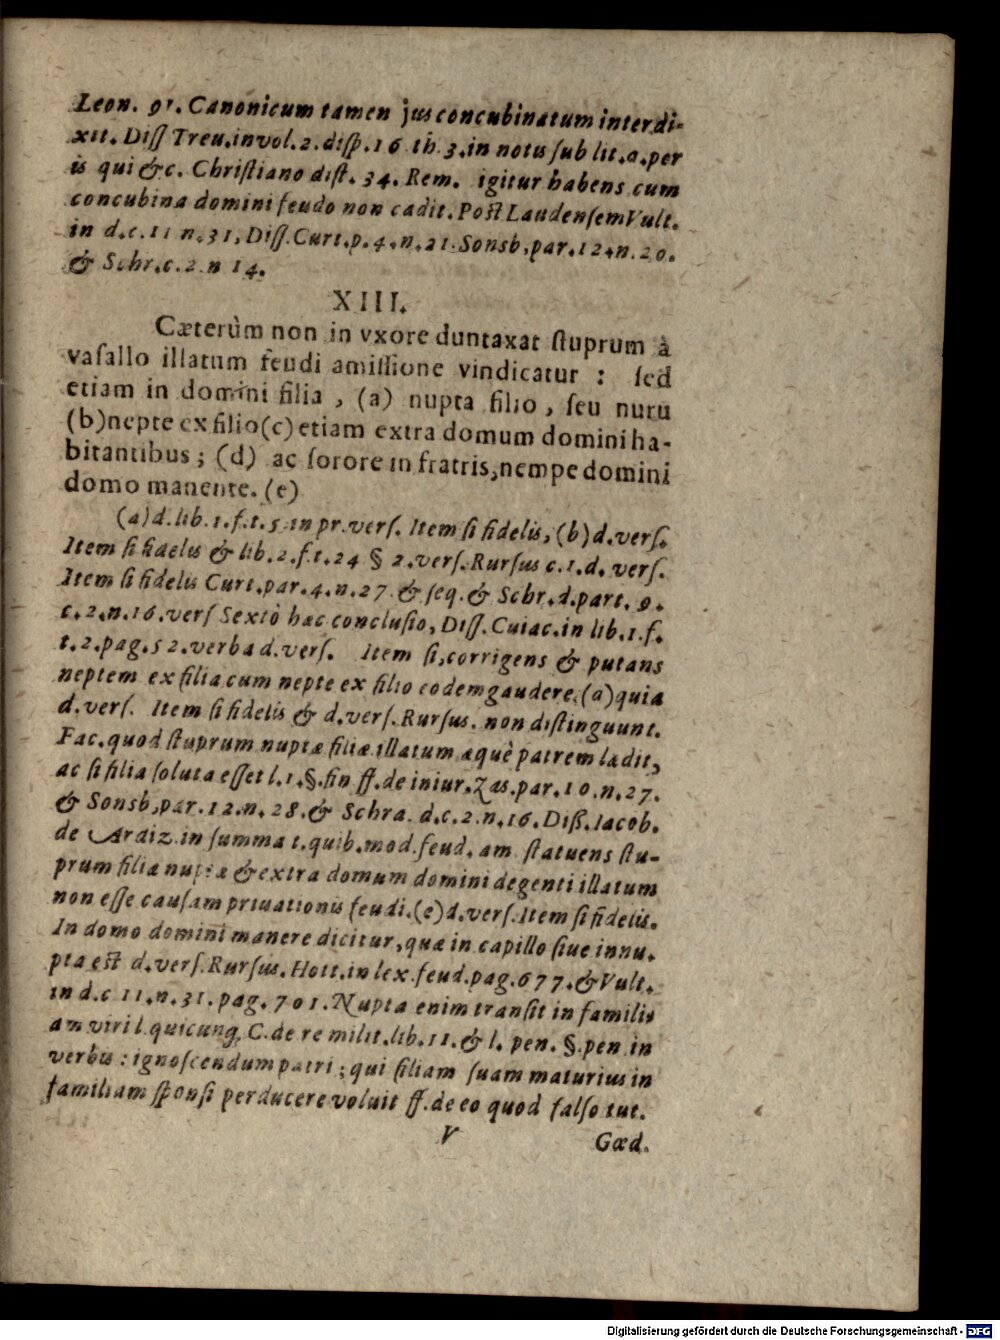 Leon. 91. Canonicum tamen jus concubinatum interdi-
xit. Diſſ Treu. in vol. 2. diſp. 16 th. 3. in notis ſub lit. a. per
is qui &c. Chriſtiano diſt. 34. Rem. igitur habens cum
concubina domini feudo non cadit. Poſt Laudenſem Vult.
in d. c. 11 n. 31, Diſſ. Curt. p. 4. n. 21. Sonsb. par. 12. n. 20.
& Schr. c. 2. n 14.
XIII.
Cæterùm non in vxore duntaxat ſtuprum à
vaſallo illatum feudi amiſſione vindicatur : ſed
etiam in domini filia , (a) nupta filio , ſeu nuru
(b) nepte ex filio (c) etiam extra domum domini ha-
bitantibus ; (d) ac ſorore in fratris, nempe domini
domo manente. (e)
(a) d. lib. 1. f. t. 5 in pr. verſ. Item ſi fidelis, (b) d. verſ.
Item ſi fidelis & lib. 2. f. t. 24 § 2. verſ. Rurſus c. 1. d. verſ.
Item ſi fidelis Curt. par. 4. n. 27 & ſeq. & Schr. d. part. 9.
c. 2. n. 16. verſ Sextò hac concluſio, Diſſ. Cuiac. in lib. 1. f.
t. 2. pag. 52. verba d. verſ. Item ſi, corrigens & putans
neptem ex filia cum nepte ex filio eodem gaudere. (a) quia
d. verſ. Item ſi fidelis & d. verſ. Rurſus. non diſtinguunt.
Fac. quod ſtuprum nuptæ filiæ illatum æquè patrem lædit,
ac ſi filia ſoluta eſſet l. 1. §. fin ff. de iniur. Zas. par. 10. n. 27.
& Sonsb, par. 12. n. 28. & Schra. d. c. 2. n. 16. Diß. Iacob.
de Ardiz. in ſumma t. quib. mod. feud. am ſtatuens ſtu-
prum filiæ nuptæ & extra domum domini degenti illatum
non eſſe cauſam priuationis feudi. (e) d. verſ. Item ſi fidelis.
In domo domini manere dicitur, quæ in capillo ſiue innu-
pta eſt d. verſ. Rurſus. Hott. in lex. feud. pag. 677. & Vult.
in d. c 11. n. 31. pag. 701. Nupta enim tranſit in familiã
am viri l. quicunq, C. de re milit. lib. 11. & l. pen. §. pen in
verbis : ignoſcendum patri ; qui filiam ſuam maturius in
familiam ſponſi perducere voluit ff. de eo quod falſo tut.
V Gœd.
Digitalisierung gefördert durch die Deutsche Forschungsgemeinschaft - DFG